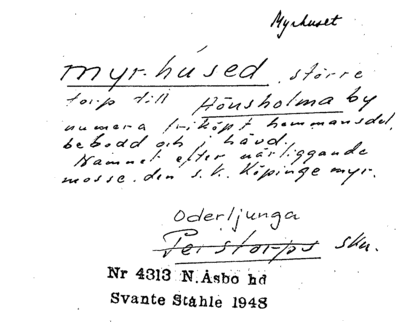 Myrhuset
myr.húsed större
torp till Hönsholma by
numera friköpt hemmansdel,
bebodd och i hävd.
Namnet efter närliggande
mosse, den s.k. Köpinge myr.
Oderljunga
Perstorps skn.
Nr 4313 N.Åsbo hd
Svante Ståhle 1948